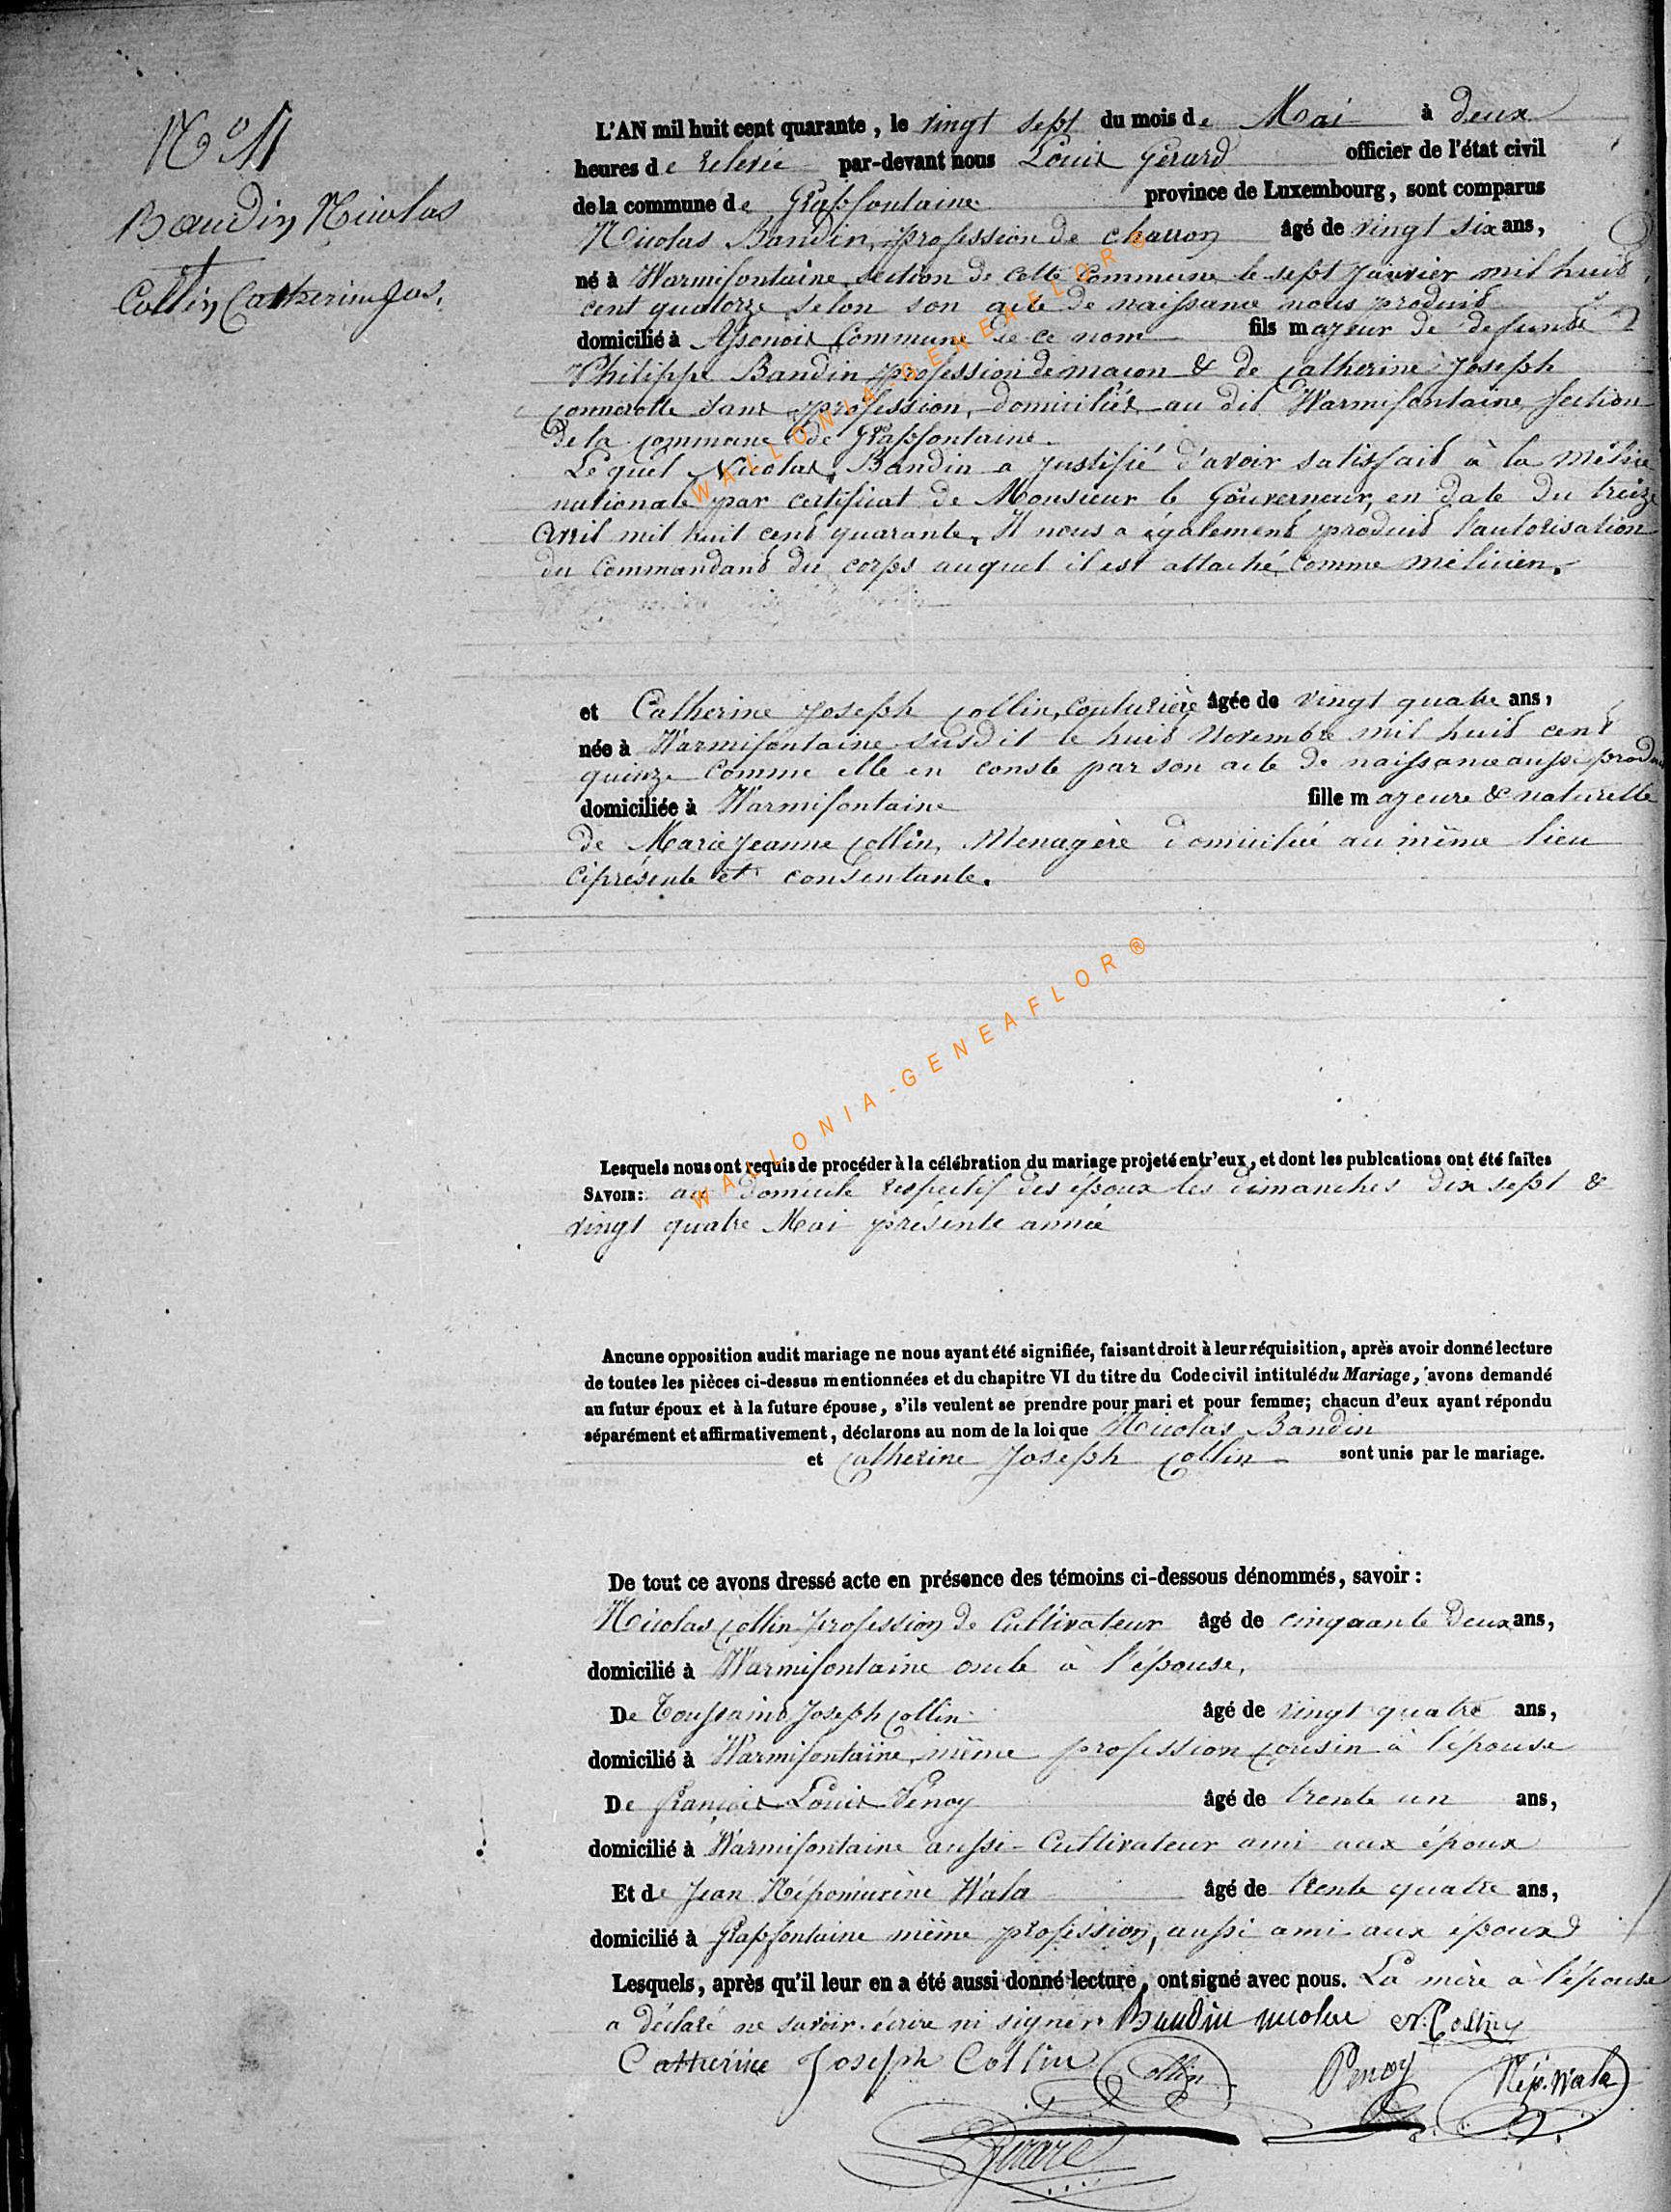 N° 11
Baudin Nicolas
et
Collin Catherine Jos.
L'AN mil huit cent quarante, le vingt sept du mois de Mai à deux
heures de relevée par-devant nous Louis Gérard officier de l'état civil
de la commune de Grapfontaine province de Luxembourg, sont comparus
Nicolas Baudin, profession de charron âgé de vingt six ans,
né à Warmifontaine section de cette commune le sept janvier mil huit
cent quatorze selon son acte de naissance nous produit
domicilié à Assenois commune de ce nom fils majeur de defunt
Philippe Baudin profession de maçon & de Catherine Joseph
connerotte sans profession, domiciliés au dit Warmifontaine section
de la commune de Grapfontaine.
Lequel Nicolas Baudin a justifié d'avoir satisfait à la milice
nationale par certificat de Monsieur le Gouverneur, en date du treize
Avril mil huit cent quarante. Il nous a également produit l'autorisation
du Commandant du corps auquel il est attaché comme milicien.
et Catherine Joseph Collin, couturière âgée de vingt quatre ans,
née à Warmifontaine susdit le huit Novembre mil huit cent
quinze comme elle en conste par son acte de naissance aussi produit
domiciliée à Warmifontaine fille majeure & naturelle
de Marie Jeanne Collin, Menagère domiciliée au même lieu
ciprésente et consentante.
WALLONIA-GENEAFLOR®
WALLONIA-GENEAFLOR®
Lesquels nous ont requis de procéder à la célébration du mariage projeté entr'eux, et dont les publcations ont été faites
SAVOIR: au domicile respectif des époux les dimanches dix sept &
vingt quatre Mai présente année
Aucune opposition audit mariage ne nous ayant été signifiée, faisant droit à leur réquisition, après avoir donné lecture
de toutes les pièces ci-dessus mentionnées et du chapitre VI du titre du Code civil intitulé du Mariage, avons demandé
au futur époux et à la future épouse, s'ils veulent se prendre pour mari et pour femme; chacun d'eux ayant répondu
séparément et affirmativement, déclarons au nom de la loi que Nicolas Baudin
et Catherine Joseph Collin sont unis par le mariage.
De tout ce avons dressé acte en présence des témoins ci-dessous dénommés, savoir:
Nicolas Collin profession de Cultivateur âgé de cinquante deux ans,
domicilié à Warmifontaine oncle à l'épouse,
De Toussaint Joseph Collin âgé de vingt quatre ans,
domicilié à Warmifontaine, même profession cousin à l'épouse
De François Louis Penoy âgé de trente un ans,
domicilié à Warmifontaine aussi Cultivateur ami aux époux
Et de Jean Népomucène Wala âgé de trente quatre ans,
domicilié à Grapfontaine même profession, aussi ami aux époux
Lesquels, après qu'il leur en a été aussi donné lecture, ont signé avec nous. La mère à l'épouse
a déclaré ne savoir écrire ni signer. Baudin nicolas N. Collin
Catherine Joseph Collin Collin Penoy Nép. Wala
Gerard